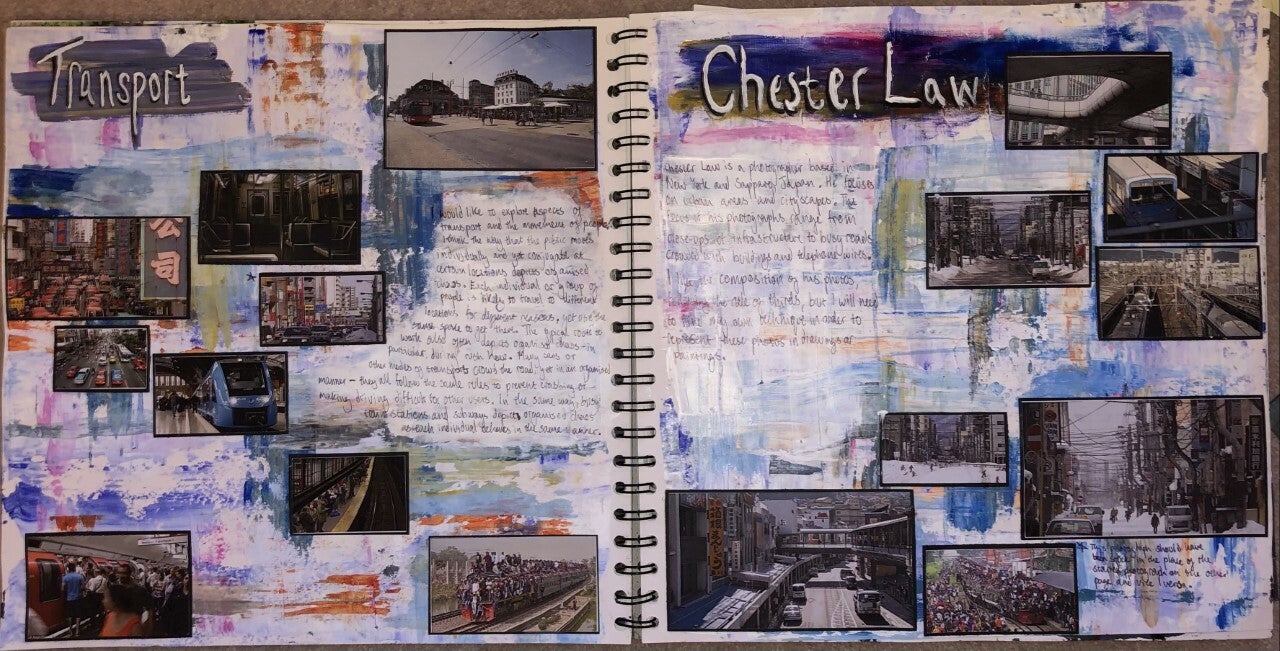 Transport
I would like to explore aspects of
transport and the movement of people.
I think the way that the public moves
individually and yet congregate at
certain locations depicts organised
chaos. Each individual or group of
people is likely to travel to different
locations, for different reasons, yet use the
same space to get there. The typical route to
work also often depicts organised chaos - in
particular during rush hour. Many cars or
other modes of transports crowd the road; yet in an organised
manner - they all follow the same rules to prevent crashing or
making driving difficult for other users. In the same way, busy
train stations and subways depict organised chaos
as each individual behaves in the same manner.
公司
Chester Law
Chester Law is a photographer based in
New York and Sapporo, Japan. He focuses
on urban areas and cityscapes. The
focus of his photographs change from
close-ups of infrastructure to busy roads
crowded with buildings and telephone wires.
I like the composition of his photos,
the rule of thirds, but I will need
to my own technique in order to
represent these photos in drawings or
paintings.
* This photograph should have
been stuck in the place of the
photograph on the other
page and vice versa.